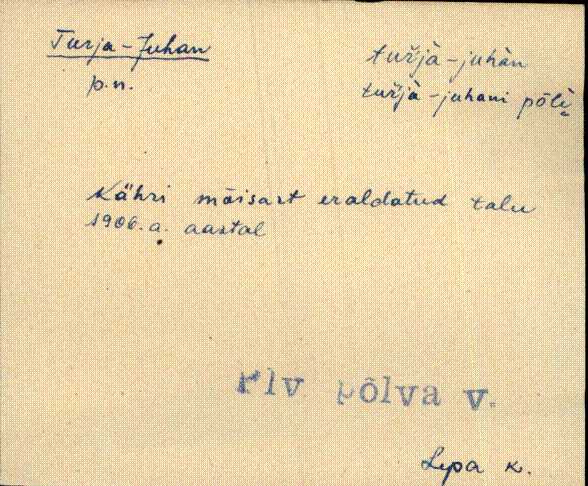 Turja-Juhan
turja-juhan
p.n.
turja-juhani põli
Kähri mõisast eraldatud talu
1906.a. aastal
Plv põlva v.
Lepa k.